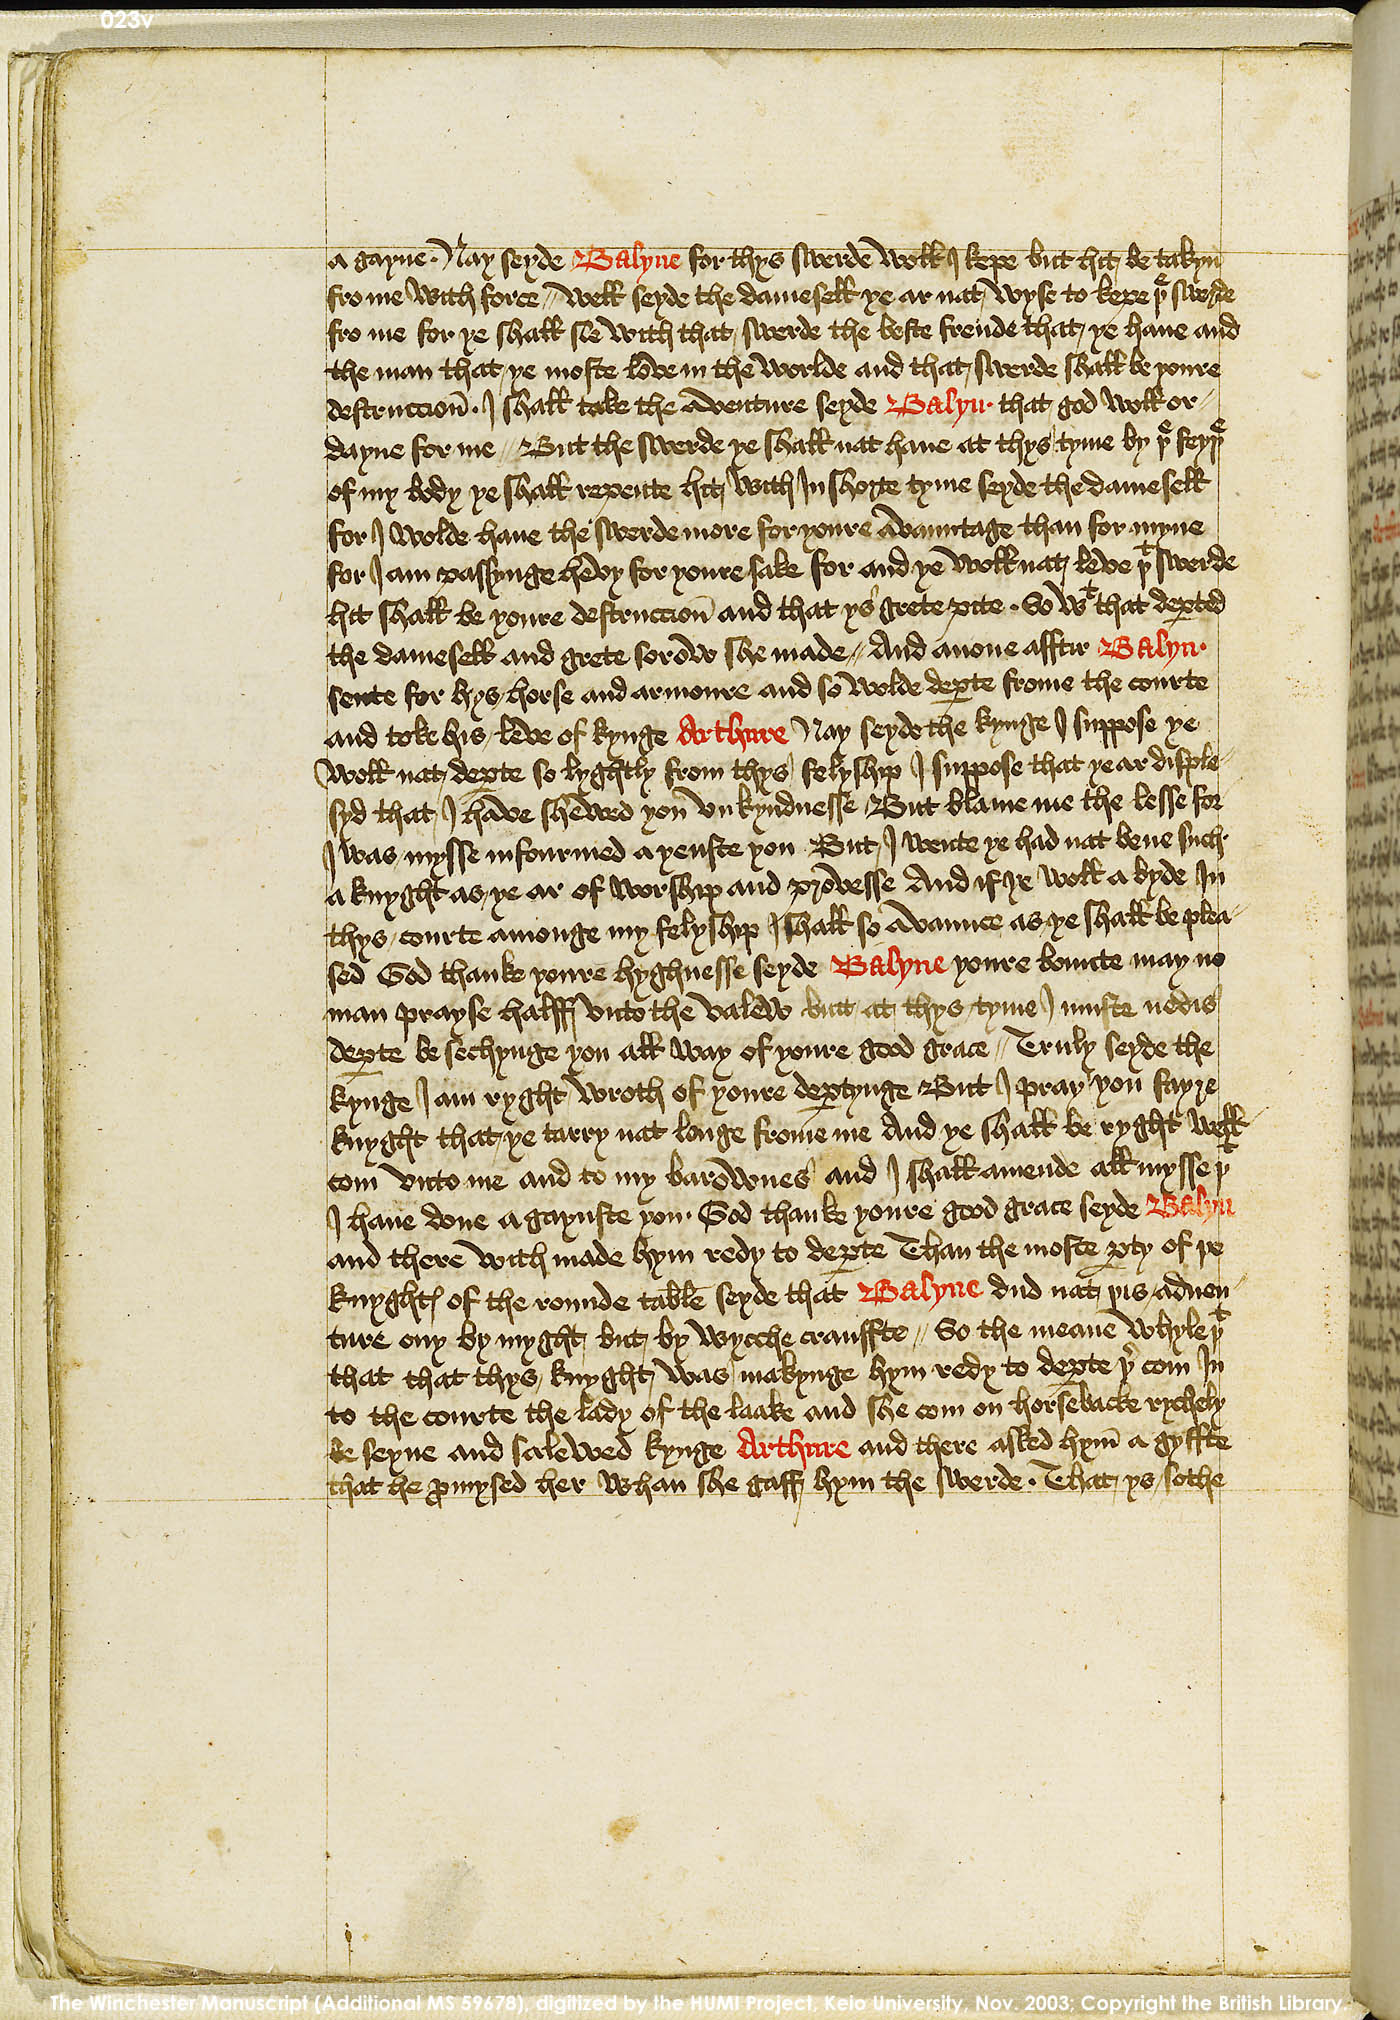 023v
a gayne · Nay seyde Balyne for thys swerde woll I kepe but hit be takyn
fro me with force // well seyde the damesell ye ar nat wyse to kepe þe swerde
fro me for ye shall sle with that swerde the beste frende that ye haue and
the man that ye moste love in the worlde and that swerde shall be youre
destruccion̄ · I shall take the aventure seyde Balyn · that god woll or-
dayne for me // But the swerde ye shall nat haue at thys tyme by þe feyþe
of my body ye shall repente hit with In shorte tyme seyde the damesell
for I wolde haue the swerde more for youre avauntage than for myne
for I am passynge hevy for youre sake for and ye woll nat leve þt swerde
hit shall be youre destruccion̄ and that ys grete pite · So wt that dep̱ted
the damesell and grete sorow she made // And anone afftir Balyn ·
sente for hys horse and armoure and so wolde dep̱te frome the courte
and toke his leve of kynge Arthure Nay seyde the kynge I suppose ye
woll nat dep̱te so lyghtly from thys felyship I suppose that ye ar disple-
syd that I have shewed you vnkyndnesse But blame me the lesse for
I was mysse infourmed ayenste you But I wente ye had nat bene such ·
a knyght as ye ar of worship and prouesse And if ye woll a byde In
thys courte amonge my felyship I shall so avaunce as ye shall be plea-
sed God thanke youre hyghnesse seyde Balyne youre bounte may no
man prayse halff vnto the valew butt at thys tyme I muste nedis
dep̱te be sechynge you all way of youre good grace // Truly seyde the
kynge I am ryght wroth of youre dep̱tynge But I pray you fayre
knyght that ye tarry nat longe frome me And ye shall be ryght well
com vnto me and to my barownes and I shall amende all mysse þt
I haue done agaynste you · God thanke youre good grace seyde Balyn
and there with made hym redy to dep̱te Than the moste p̱ty of þe
knyghtꝭ of the rounde table seyde that Balyne dud nat þis adven-
ture only by myght but by wycche crauffte // So the meane whyle þt
that that thys knyght was makynge hym redy to dep̱te þr com In
to the courte the lady of the laake and she com on horsebacke rychely
be seyne and salewed kynge Arthure and there asked hym̄ a gyffte
that he ꝓmysed her whan she gaff hym the swerde · That ys sothe
The Winchester Manuscript (Additional MS 59678), digitized by the HUMI Project, Keio University, Nov. 2003; Copyright the British Library.